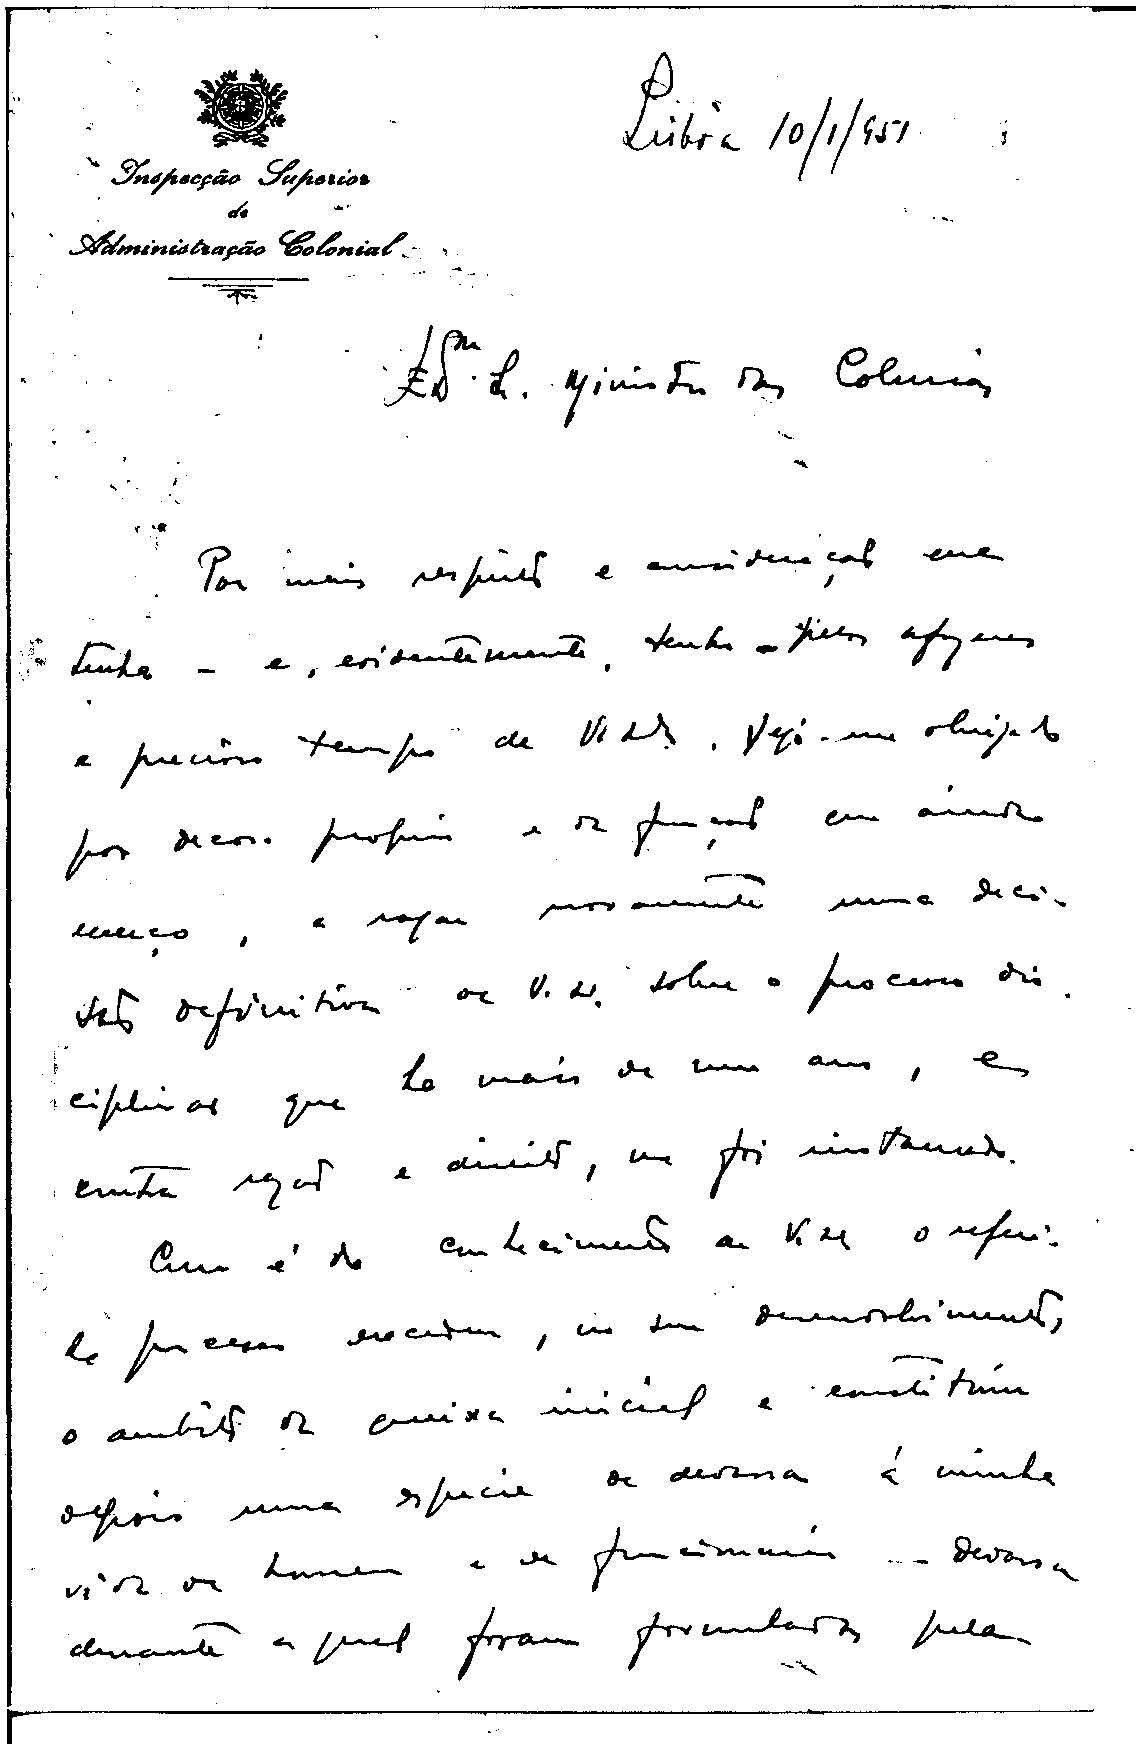 Lisbôa 10/1/951
Inspecção Superior
de
Administração Colonial
Exmo. Sr. Ministro das Colónias
Por mais respeito e consideração que
tenha – e, evidentemente, tenho – pelos afazeres
e precioso tempo de V. Exa., vejo-me obrigado
por decoro próprio e da função que ainda
exerço, a rogar novamente uma deci-
são definitiva de V. Exa. sobre o processo dis-
ciplinar que há mais de um ano, e
contra razão e direito, me foi instaurado.
Como é do conhecimento de V. Exa. o referi-
do processo excedeu, no seu desenvolvimento,
o âmbito da queixa inicial e constituiu
depois uma espécie de devassa á minha
vida de homem e de funcionário – devassa
durante a qual foram formuladas pela